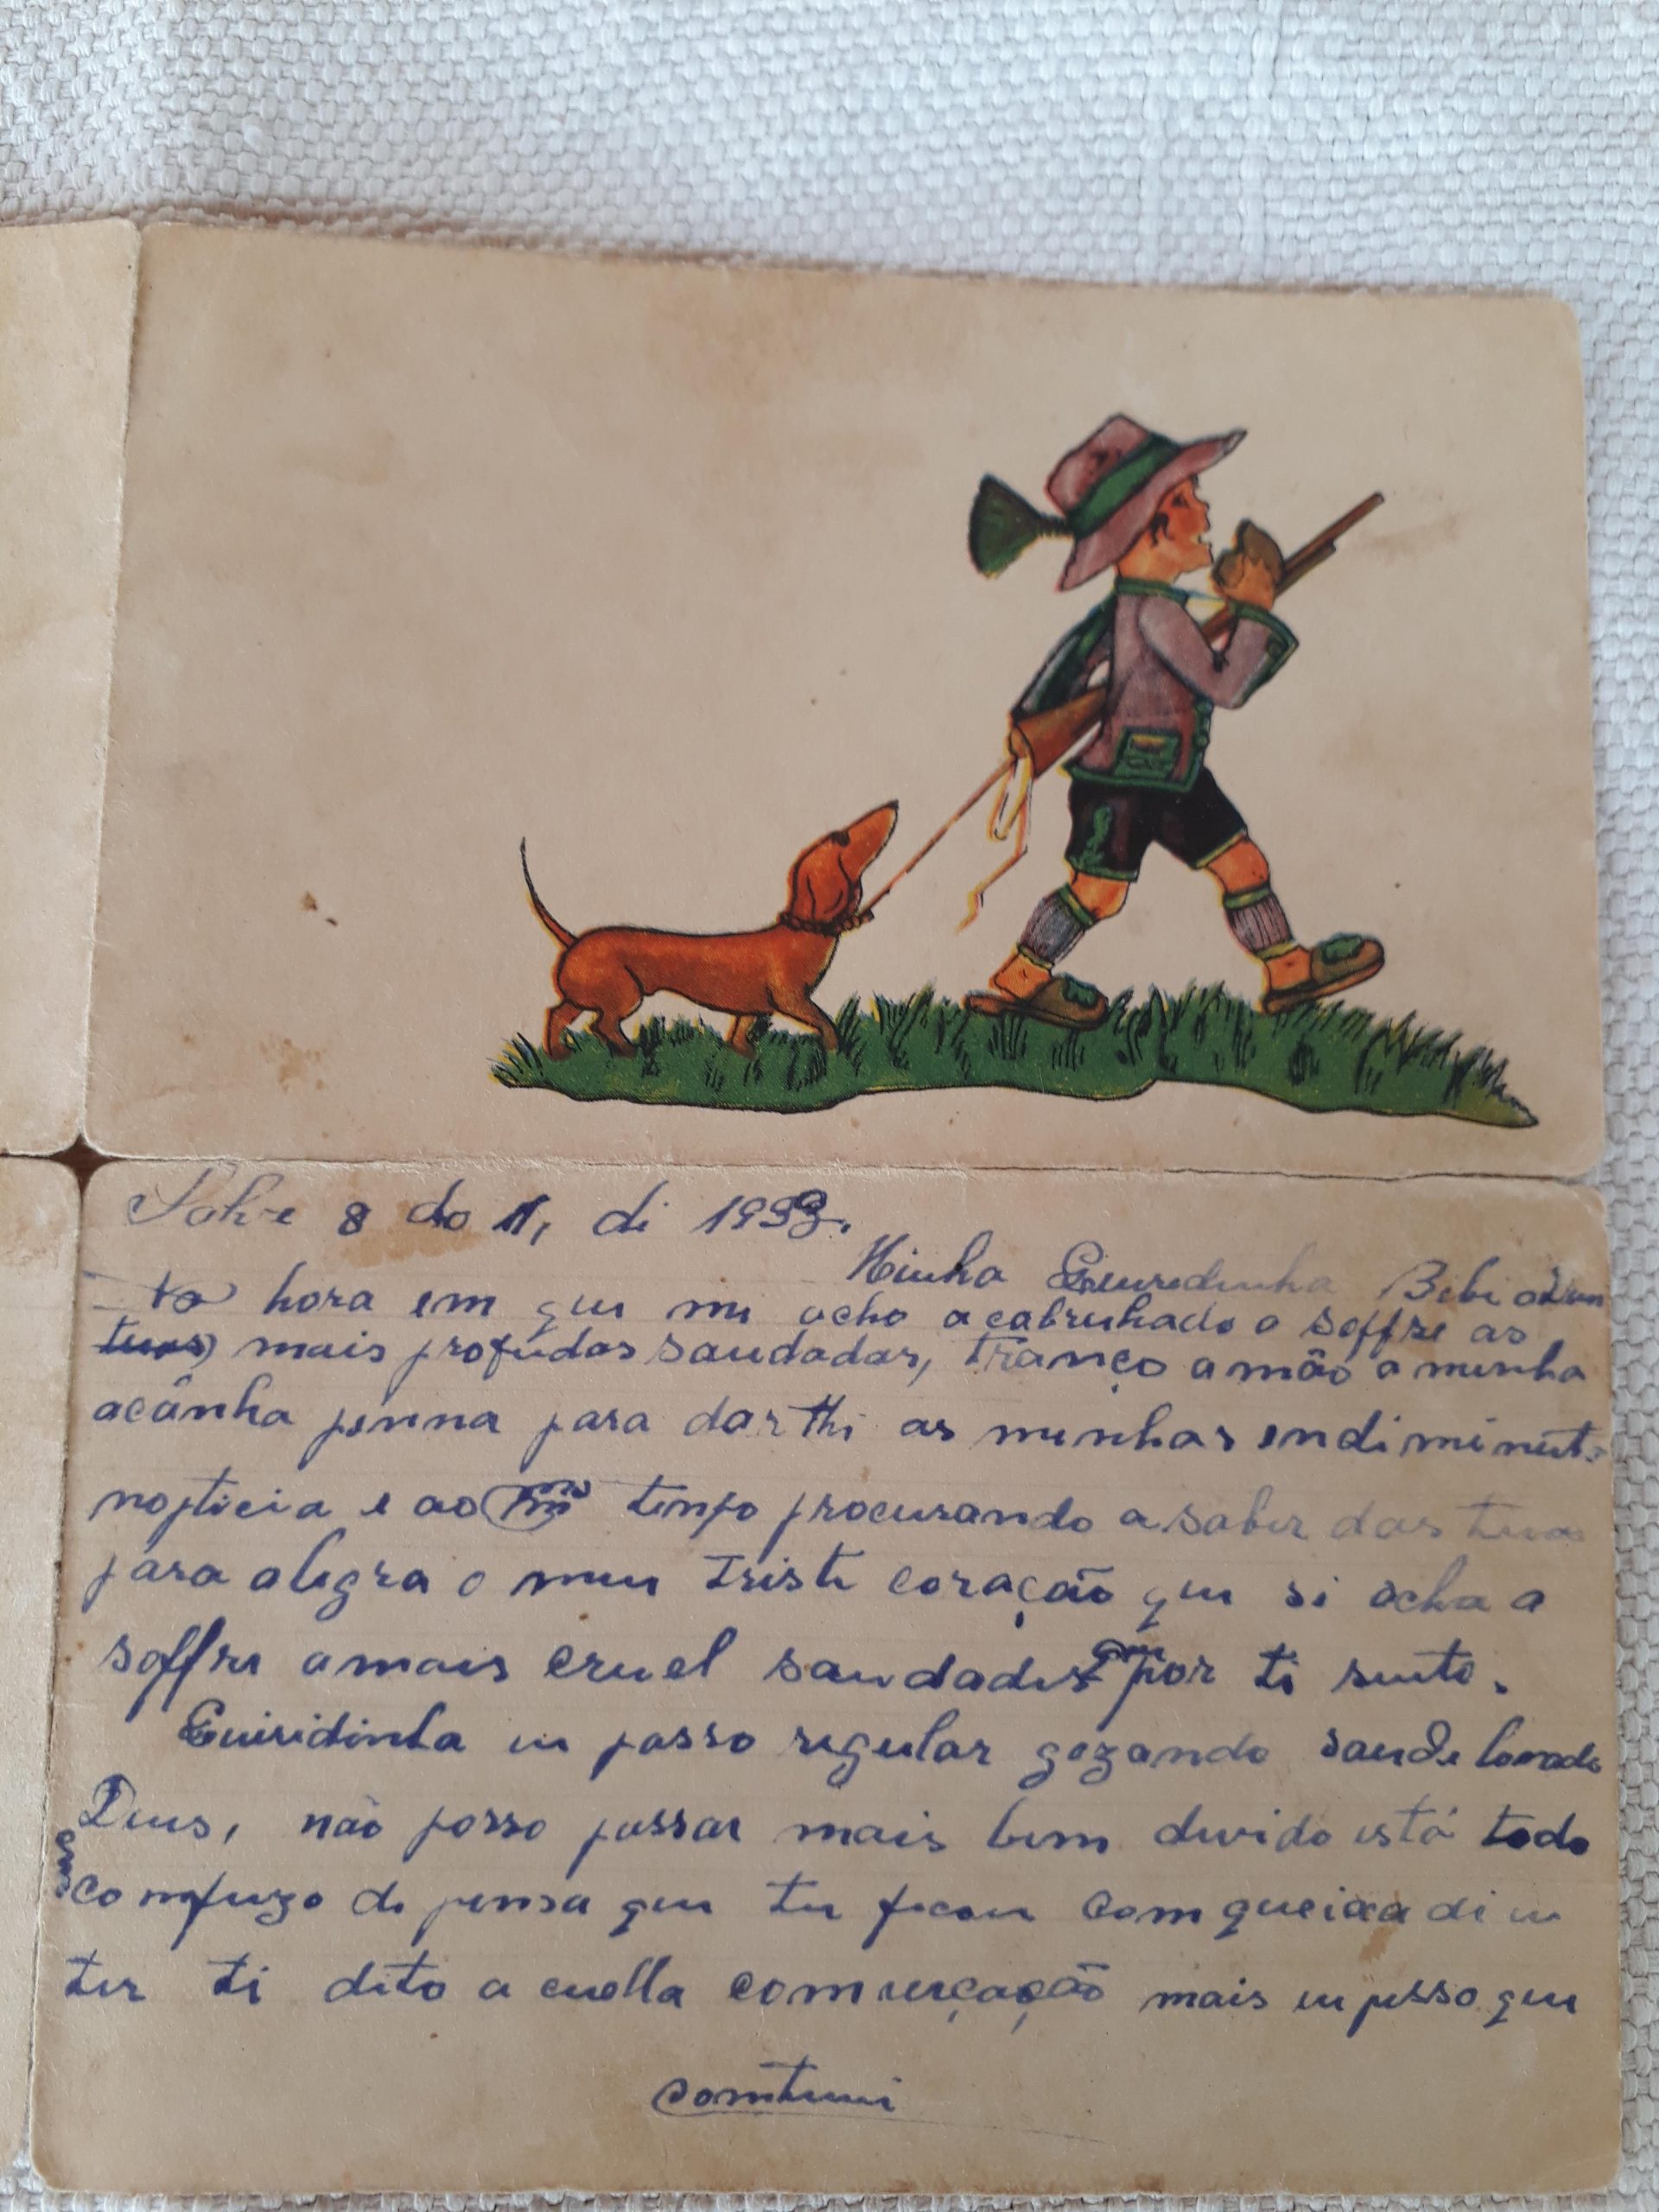 Salve 8 do 11, di 1933.
Minha Queredinha Bebi
hora em que mi acho acabrunhado o soffre as
tuas mais profudas saudadas, Tranço a mão a minha
acânha penna para darthi as minhas
noptieia e ao mmo tempo procurando a saber das tuas
para alegra o meu Triste coração que si acha a
soffre a mais cruel saudades que por ti sinto.
Quiridinha eu passo regular gozando saude
Deus, não posso passar mais bem divido está todo
comfuzo de pensa que tu ficou com queixa di eu
ter ti dito a cuella comverçação mais eu pesso que
comtinui